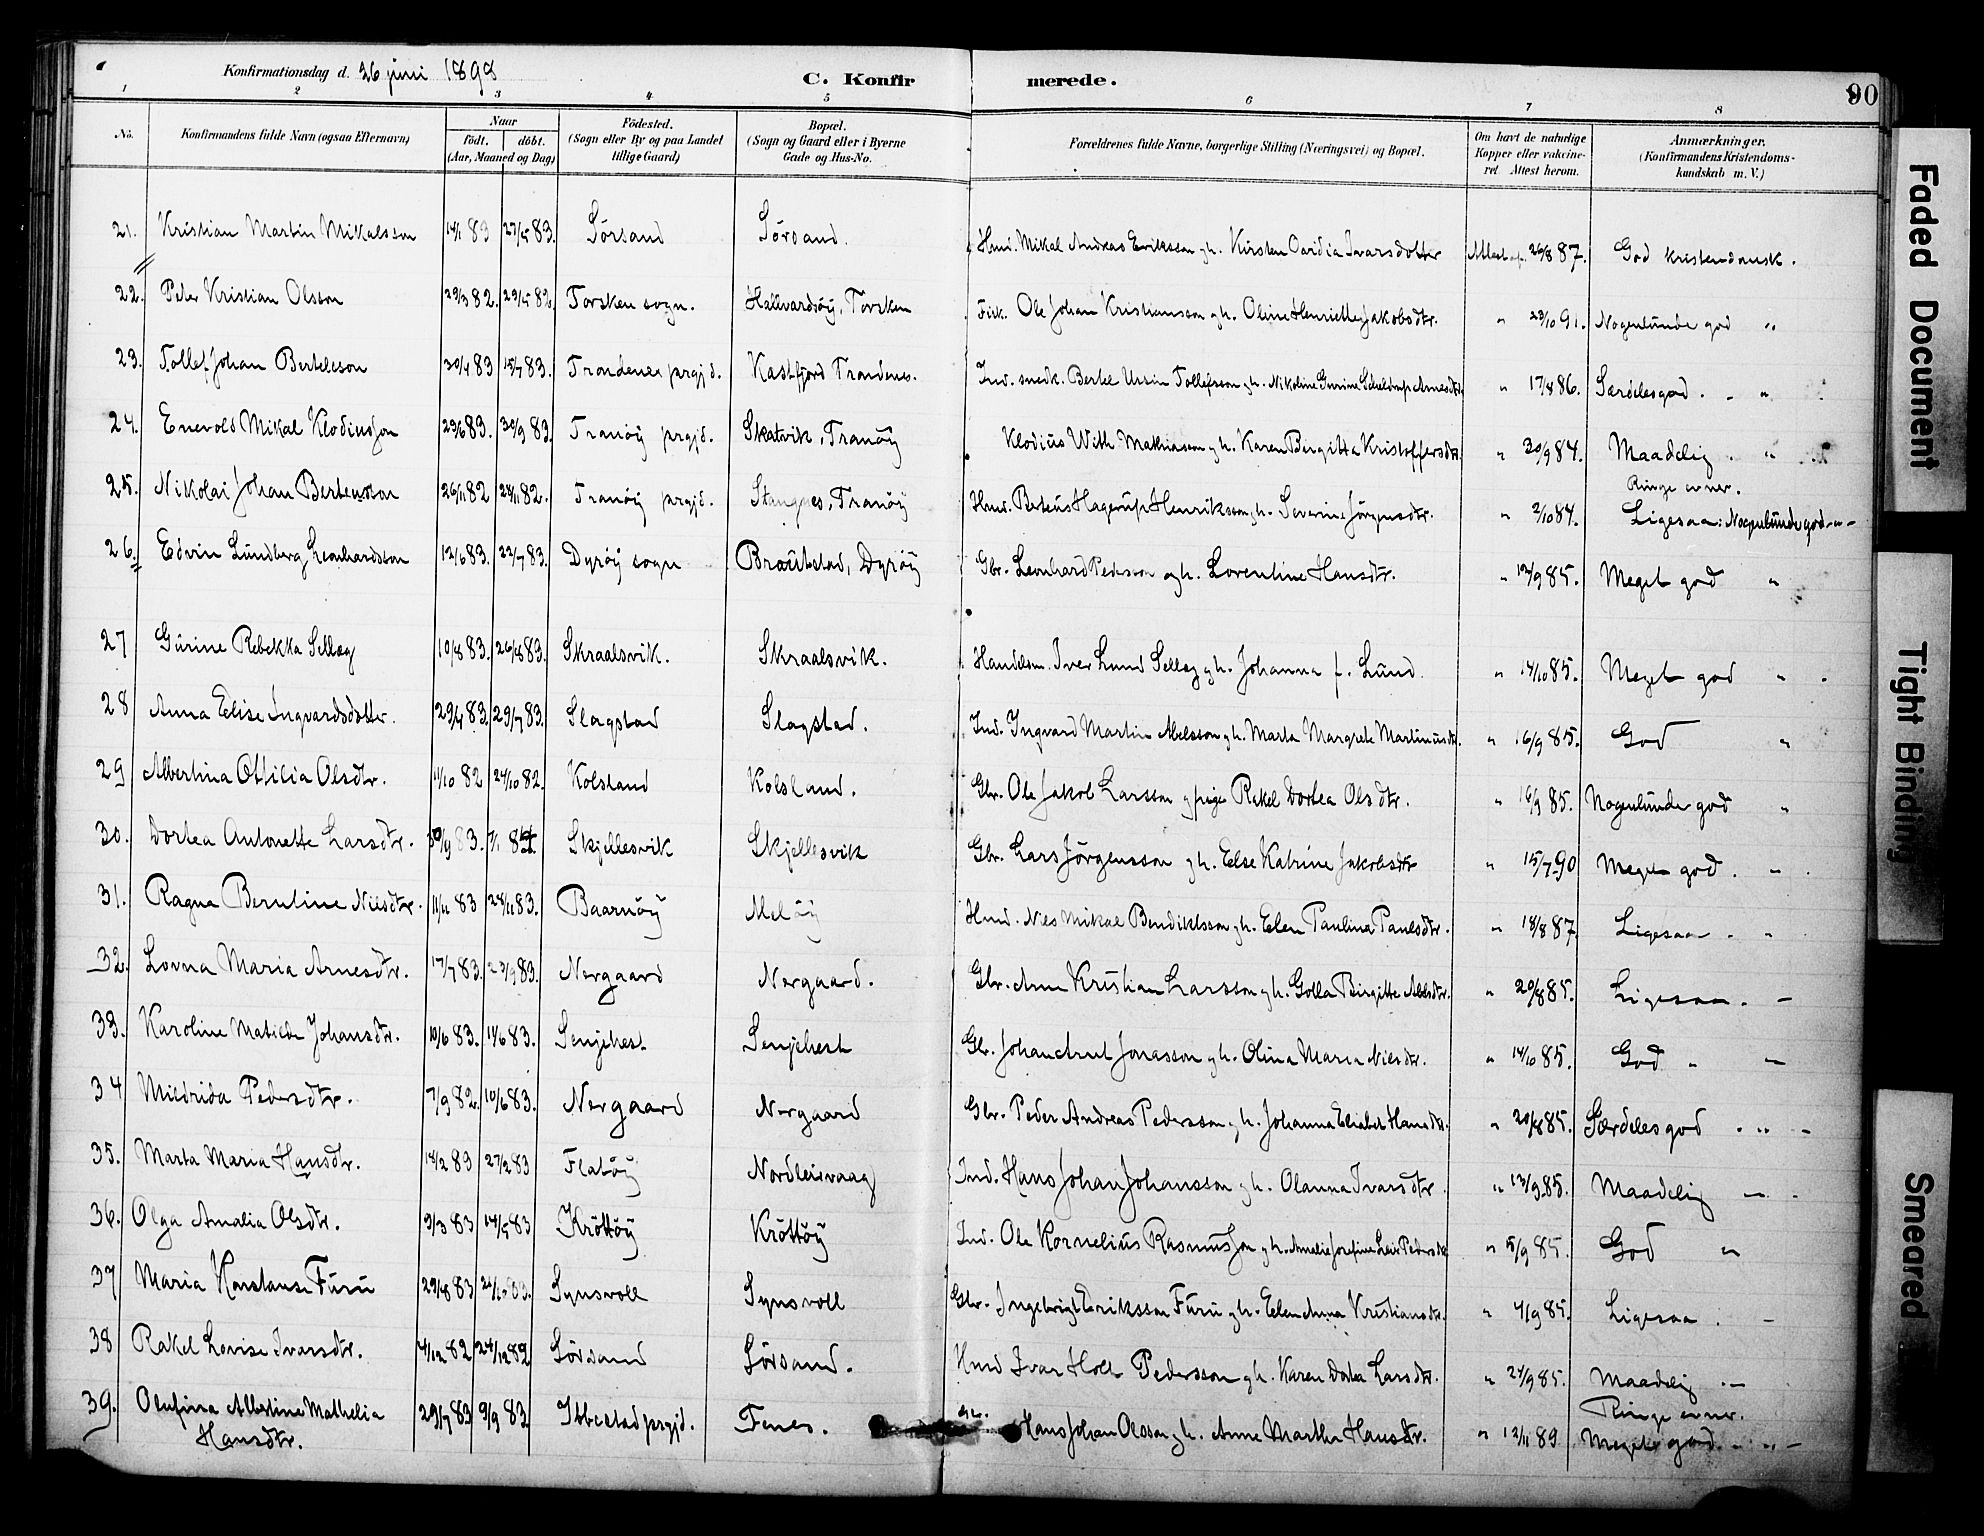 Konfirmationsdag d. 26 juni 1898
C. Konfirmerede.
90
1 2 3 4 5 6 7 8
No. Konfirmandens fulde Navn (ogsaa Efternavn) Naar födt. döbt. (Aar, Maaned og Dag) Födested. (Sogn eller By og paa Landet tillige Gaard) Bopæl. (Sogn og Gaard eller i Byerne Gade og Hus-No. Forældrenes fulde Navne, borgerlige Stilling (Næringsvei) og Bopæl. Om havt de naturlige Kopper eller vakcineret. Attest herom. Anmærkninger. (Konfirmandens Kristendomskundskab m. V.)
21. Kristian Martin Mikalsson 14/1 83 27/5 83. Sörsand Sörsand. Hmd. Mikal Andreas Eriksson g h. Kirsten Ivarsdotter Attest 26/8 87. God kristendomsk.
22. Peter Kristian Olsson 29/3 82. 29/5 82. Torsken sogn. Hallvardsöy, Torsken Fisk. Ole Johan Kristiansson g h. Oline Henriette Jakobsdtr. " 23/10 91. Nogenlunde god "
23. Tollef Johan Bertelsson 30/4 83 15/7 83. Trondenes prgjd. Kastfjord Trondenes. Ind. snedk. Bertel Ursin Tollefsson g h. Nikoline Gurine Scheldrup Arnesdtr. " 17/8 86. Særdeles god. - "
24. Enevold Mikal Klodiusson 23/6 83. 30/9 83. Tranöy prgjd. Skatvik, Tranöy Klodius With Mathiasson g h. Karen Birgitta Kristoffersdtr. " 30/9 84. Maadelig. "
Ringe evner.
25. Nikolai Johan 26/11 82 28/11 82. Tranöy prgjd. Stangnes, Tranöy Hmd. Berteus Hagerup Henriksson g h. Severine Jörgensdtr. " 2/10 84. Ligesaa: Nogenlunde god -"-
26. Edvin Lundberg Leonhardsson 12/6 83. 22/7 83. Dyröy sogn Brøstad, Dyröy Gbr. Leonhard Pedersson og h. Lorentine Hansdtr. " 12/9 85. Meget god "
27 Gurine Rebekka Selløg 10/8 83. 26/8 83. Skraalsvik. Skraalsvik. Handelsm. Iver Lund Selløg g h. Johanna f. Lund " 14/10 85. Meget god " .
28 Anna Elise Ingvardsdotter. 29/4 83. 29/7 83. Slagstad Slagstad. Ind. Ingvard Martin Abelsson g h. Marta Margrete Martinusdtr. " 16/9 85. God "
29 Albertina Ottilia Olsdtr. 11/10 82 24/10 82. Kolsland Kolsland. Gbr. Ole Jakob Larsson g pige Rakel Dortea Olsdtr. " 16/9 85. Nogenlunde god "
30. Dortea Antonette Larsdtr. 30/9 83. 7/1 84. Skjellesvik Skjellesvik Gbr. Lars Jörgensson g h. Else Katrine Jakobsdtr " 15/7 90 Meget god. -
31. Ragna Berntine Nilsdtr. 11/11 83 24/11 83. Baarnöy Melöy Hmd. Nils Mikal Bendiktsson g h. Elen Paulina Paulsdtr. " 18/8 87. Ligesaa - "
32. Lovna Maria Arnesdtr. 17/7 83. 23/9 83. Nergaard Nergaard. Gbr. Arne Kristian Larsson g h. Golla Birgitte Abelsdtr. " 20/8 85. Ligesaa. -
33. Karoline Matilde Johansdtr. 10/6 83. 11/6 83. Senjehest Senjehest Gb. Johan Arnt Jonasson g h. Olina Maria Nilsdtr. " 14/10 85. God " -
34 Mildrida Pedersdtr. 7/9 82. 10/6 83. Nergaard Nergaard Gbr. Peder Andreas Pedersson g h. Johanna Elisabet Hansdtr. " 20/8 85. Særdeles god . " -
35. Marta Maria Hansdtr. 18/2 83 27/2 83 Flatöy Nordleirvaag Ind. Hans Johan Johansson g h. Olanna Ivarsdtr. " 13/9 85. Maadelig -
36. Olga Amalia Olsdtr. 9/3 83 14/5 83 Kröttöy Kröttöy Ind. Ole Kornelius Rasmusson g h. Amelie Josefine Pedersdtr " 5/9 85. God "
37 Maria Konstanse Furu 29/8 83 83. Synsvoll Synsvoll Gbr. Ingebrigt Eriksson Furu g h. Elen Anna Kristiansdtr. " 4/9 85. Ligesaa. -
38 Rakel Lovise Ivarsdtr. 4/12 82 24/12 82 Sörsand Sörsand. Hmd Ivar Holt Pedersson g h. Karen Dortea Larsdtr. " 24/9 85. Maadelig. -
Ringe evner.
39. Olufina Albertine Mathelia Hansdtr. 29/7 83 9/9 83 Ibbestad prgjd. Fenes. Hans Johan Olsson g h. Anne Martha Hansdtr. " 12/11 89 Meget god. - " -
Faded Document
Tight Binding
Smeared